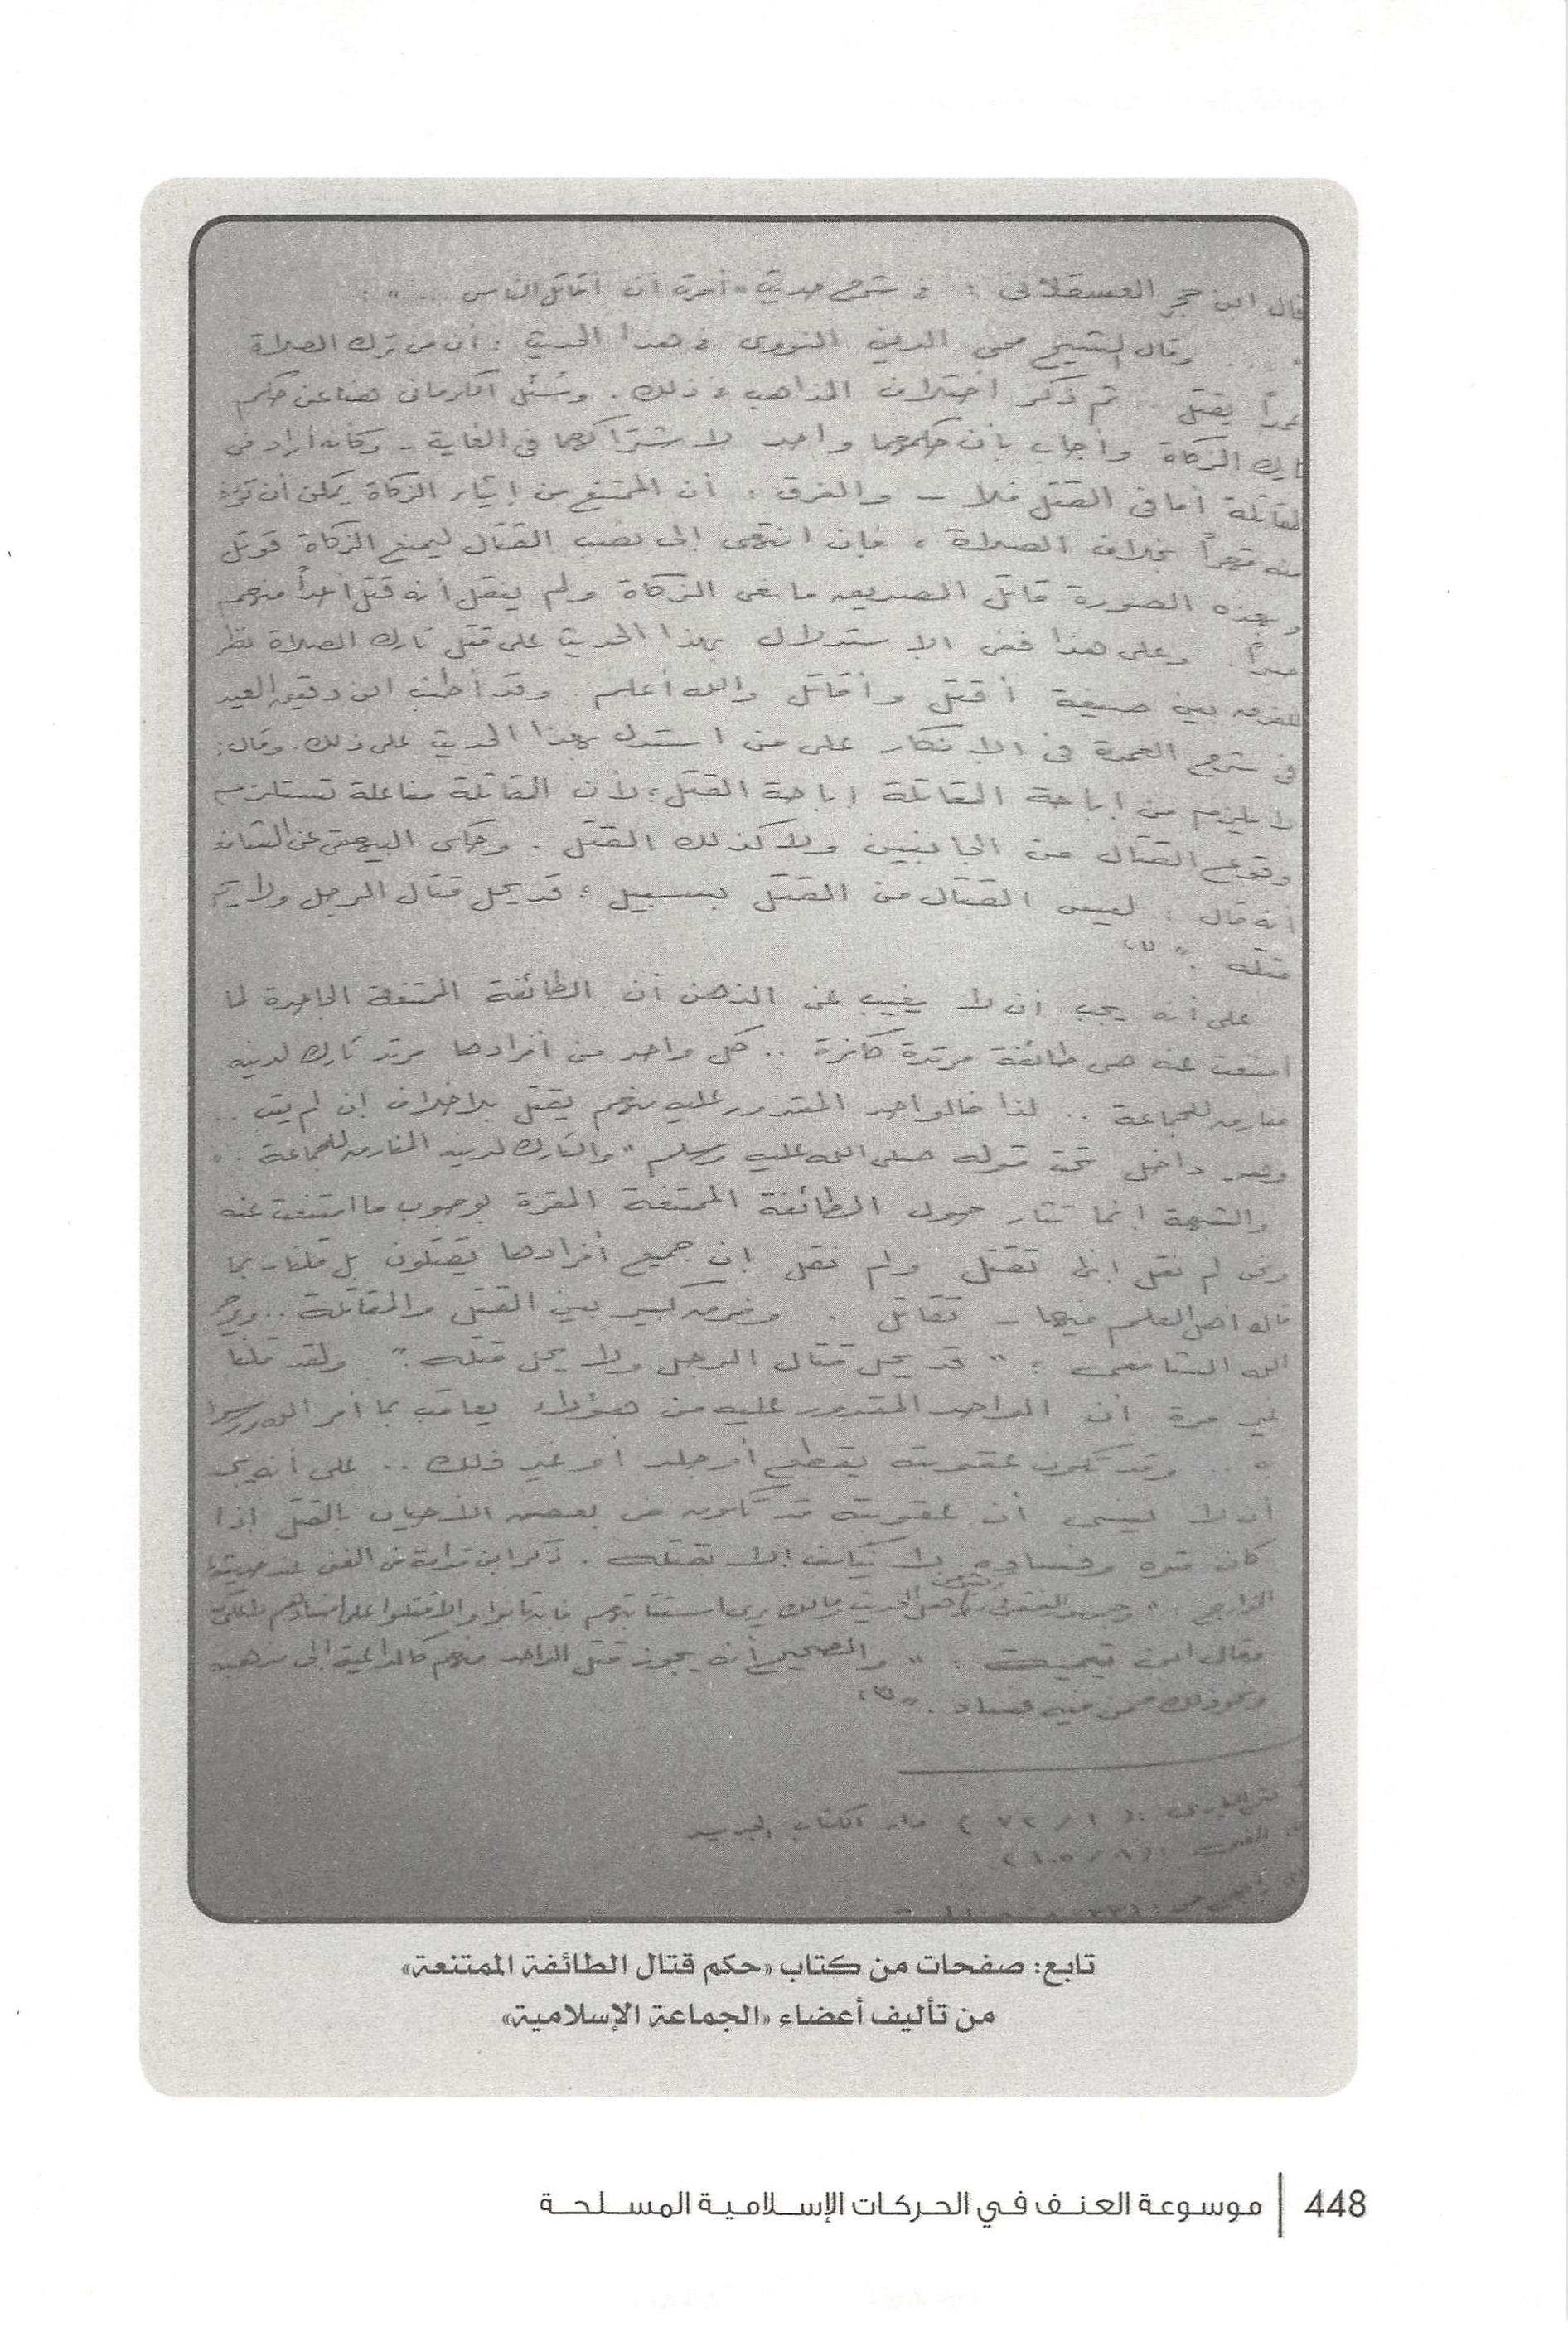 قال ابن حجر العسقلاني : في شرح حديث "أمرت أن أقاتل الناس .. " :
" ... وقال الشيخ محي الدين النووى في هذا الحديث : أن من ترك الصلاة
عمداً يقتل .. ثم ذكر اختلاف المذاهب في ذلك . وسُئل الكرماني هنا عن حكم
تارك الزكاة وأجاب بأن حكمهما واحد لاشتراكهما في الغاية - وكأنه أراد في
المقاتلة أما في القتل فلا - والفرق : أن الممتنع من إيتاء الزكاة يمكن أن تؤخذ
منه قهراً بخلاف الصلاة ، فإن انتهى إلى نصب القتال ليمنع الزكاة قوتل
وبهذه الصورة قاتل الصديق مانعى الزكاة ولم ينقل أنه قتل أحداً منهم
صبراً . وعلى هذا ففى الاستدلال بهذا الحديث على قتل تارك الصلاة نظر
للفرق بين صيغة أقتل وأقاتل والله أعلم . وقد أطنب ابن دقيق العيد
في شرح العمدة في الانكار على من استدل بهذا الحديث على ذلك . وقال :
لا يلزم من إباحة المقاتلة إباحة القتل ؛ لأن المقاتلة مفاعلة تستلزم
وقوع القتال من الجانبين ولا كذلك القتل . وحكى البيهقى عن الشافعى
أنه قال : ليس القتال من القتل بسبيل ؛ قد يحل قتال الرجل ولا يحل
قتله . " (١)
على أنه يجب أن لا يغيب عن الذهن أن الطائفة الممتنعة الجاحدة لما
امتنعت عنه هى طائفة مرتدة كافرة .. كل واحد من أفرادها مرتد تارك لدينه
مفارق للجماعة .. لذا فالواحد المقدور عليه منهم يقتل بلا خلاف إن لم يتب ..
وهو داخل تحت قوله صلى الله عليه وسلم " والتارك لدينه المفارق للجماعة . "
والشبهة إنما تثار حول الطائفة الممتنعة المقرة بوجوب ما امتنعت عنه
ونحن لم نقل إنها تقتل ولم نقل إن جميع أفرادها يقتلون بل قلنا - بما
قاله أهل العلم فيها - تقاتل . وفرق كبير بين القتل والمقاتلة .. ويرحم
الله الشافعى : " قد يحل قتال الرجل ولا يحل قتله . " ولقد قلنا
غير مرة أن الواحد المقدور عليه من هؤلاء يعاقب بما أمر الله ورسوله
.. وقد تكون عقوبته بقطع أو جلد أو غير ذلك .. على أنه يجب
أن لا ينسى أن عقوبته قد تكون في بعض الأحيان بالقتل إذا
كان شره وفساده لا يكف إلا بقتله . ذكر ابن قدامة في المغنى عند حديثه
الخوارج : " وجمهور الفقهاء أهل الحديث ومالك يرى استتابتهم فإن تابوا وإلا قتلوا على افسادهم لا على
وقال ابن تيمية : " والصحيح أنه يجوز قتل الواحد منهم كالداعية إلى مذهبه
ونحو ذلك ممن فيه فساد . " (٣)
فتح البارى : (١ / ٧٢ ) دار الكتاب الجديد
المغنى : (٨ / ١٠٥)
تابع: صفحات من كتاب «حكم قتال الطائفة الممتنعة»
من تأليف أعضاء «الجماعة الإسلامية»
448 | موسوعة العنف في الحركات الإسلامية المسلحة